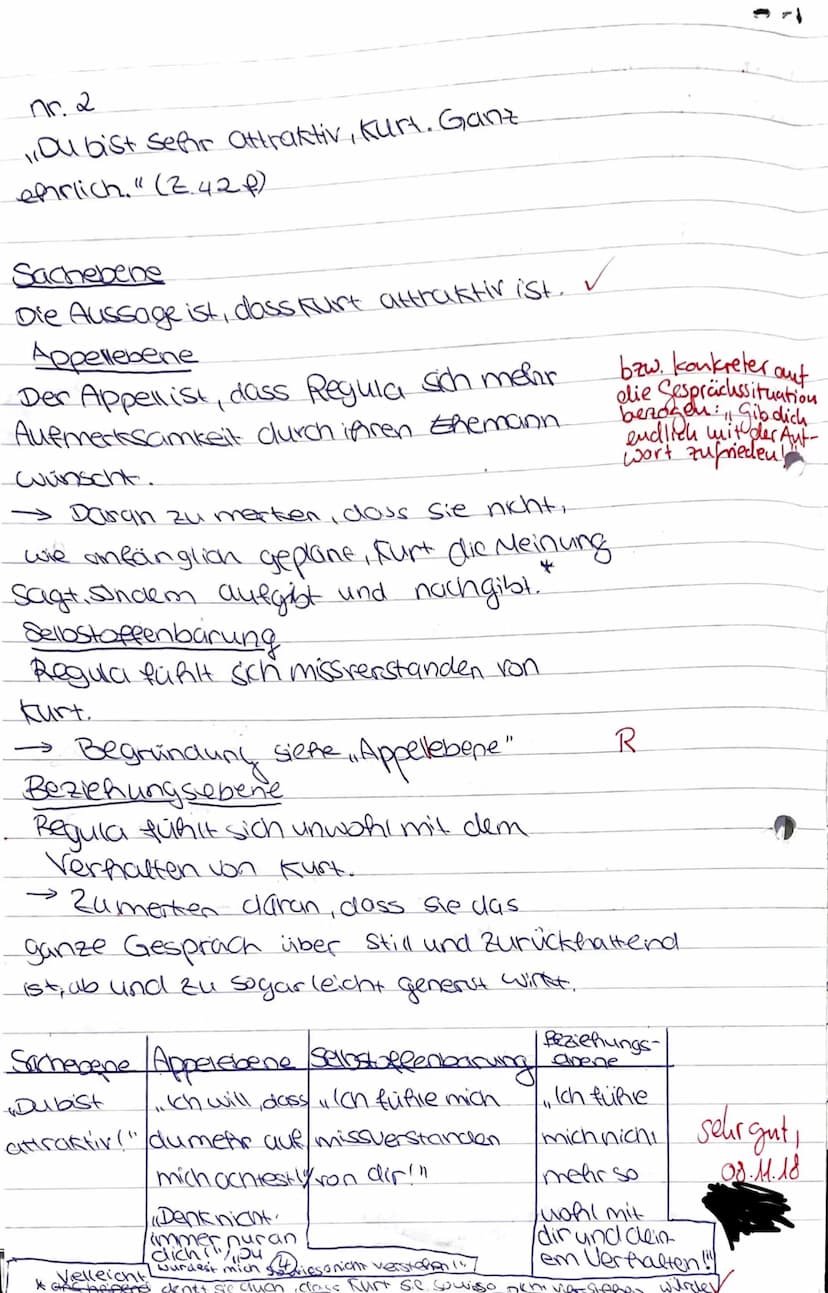 nr. 2
„Du bist sehr attraktiv, Kurt. Ganz
ehrlich." (Z. 42 f)
Sachebene
Die Aussage ist, dass Kurt attraktiv ist. ✓
Appellebene
Der Appell ist, dass Regula sich mehr
Aufmerksamkeit durch ihren Ehemann
wünscht.
bzw. konkreter auf
die Gesprächssituation
bezogen: „Gib dich
endlich mit der Ant-
wort zufrieden!"
→ Daran zu merken, dass sie nicht,
wie anfänglich geplant, Kurt die Meinung
sagt, sondern aufgibt und nachgibt.*
Selbstoffenbarung
Regula fühlt sich missverstanden von
Kurt.
→ Begründung siehe „Appellebene"
R
Beziehungsebene
Regula fühlt sich unwohl mit dem
Verhalten von Kurt.
→ Zu merken daran, dass sie das
ganze Gespräch über still und zurückhaltend
ist, ab und zu sogar leicht genervt wirkt.
Sachebene Appelebene Selbstoffenbarung Beziehungs-
ebene
„Du bist
attraktiv!"
„Ich will, dass
du mehr auf
mich achtest!"
„Denk nicht
immer nur an
dich!", „Du
würdest mich sowieso nicht verstehen!"
④
„Ich fühle mich
missverstanden
von dir!"
„Ich fühle
mich nicht
mehr so
wohl mit
dir und dein-
em Verhalten!"
sehr gut,
08.11.18
* Vielleicht denkt sie auch, dass Kurt sie sowieso nicht verstehen würde ✓